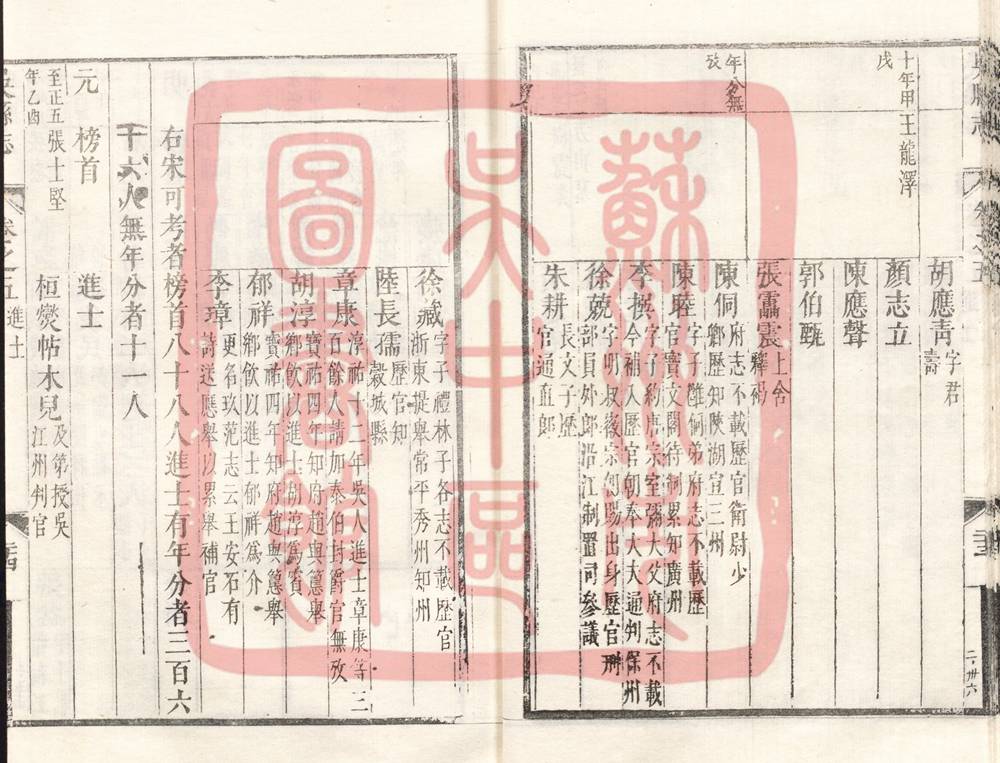 吳縣志 卷之五
十年甲戌 王龍澤
胡應青 字君壽
顏志立
陳應聲
郭伯甄
張震 上舍釋褐
年分無攷
陳侗 府志不載歷官衛尉少卿歷知陝湖宣三州
陳睦 字子雝侗弟府志不載歷官寶文閣待制累知廣州
李撰 字子約唐宗室彌大父府志不載今補入歷官朝奉大夫通判保州
徐兢 字明叔徽宗朝賜出身歷官刑部員外郎沿江制置司參議
朱耕 長文子歷官通直郎
徐藏 字子禮林子各志不載歷官浙東提舉常平秀州知州
陸長孺 歷官知穀城縣
章康 淳祐十二年吳人進士章康等三百餘人請加泰伯封爵官無攷
胡淳 寶祐四年知府趙與𥲅舉鄉飲以進士胡淳為賓
郁祥 寶祐四年知府趙與𥲅舉鄉飲以進士郁祥為介
李璋 更名玖范志云王安石有詩送應舉以累舉補官
右宋可考者榜首八十八人進士有年分者三百六
十六人無年分者十一人
元 榜首 進士
至正五年乙酉 張士堅 桓燮帖木兒 及第授吳江州判官
吳縣志 卷之五 進士